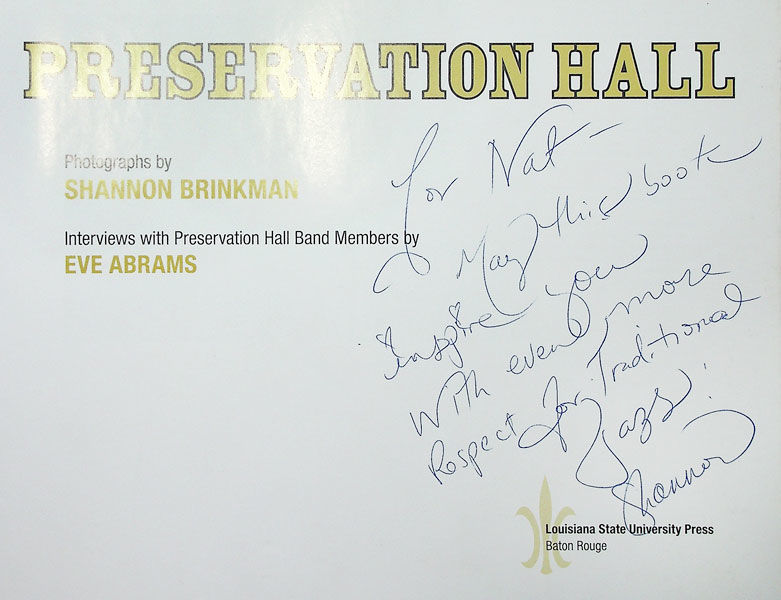 PRESERVATION HALL
Photographs by
SHANNON BRINKMAN
Interviews with Preservation Hall Band Members by
EVE ABRAMS
For Nat –
May this book
inspire you
with even more
Respect for Traditional
Jazz!
Shannon
Louisiana State University Press
Baton Rouge